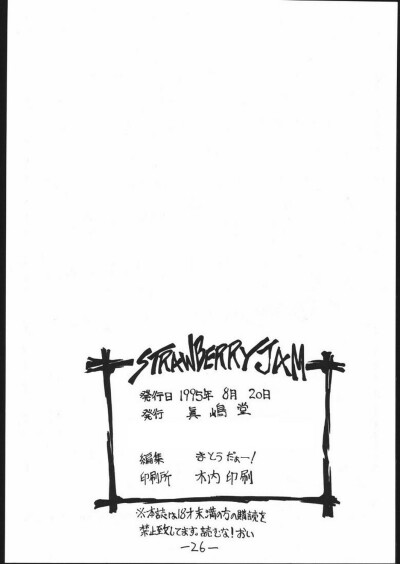 STRAWBERRY JAM
発行日 1995年 8月 20日
発行 眞嶋堂
編集 きとうだぁー!
印刷所 木内印刷
※本誌は18才未満の方の購読を
禁止致してます。読むな!おい
—26—